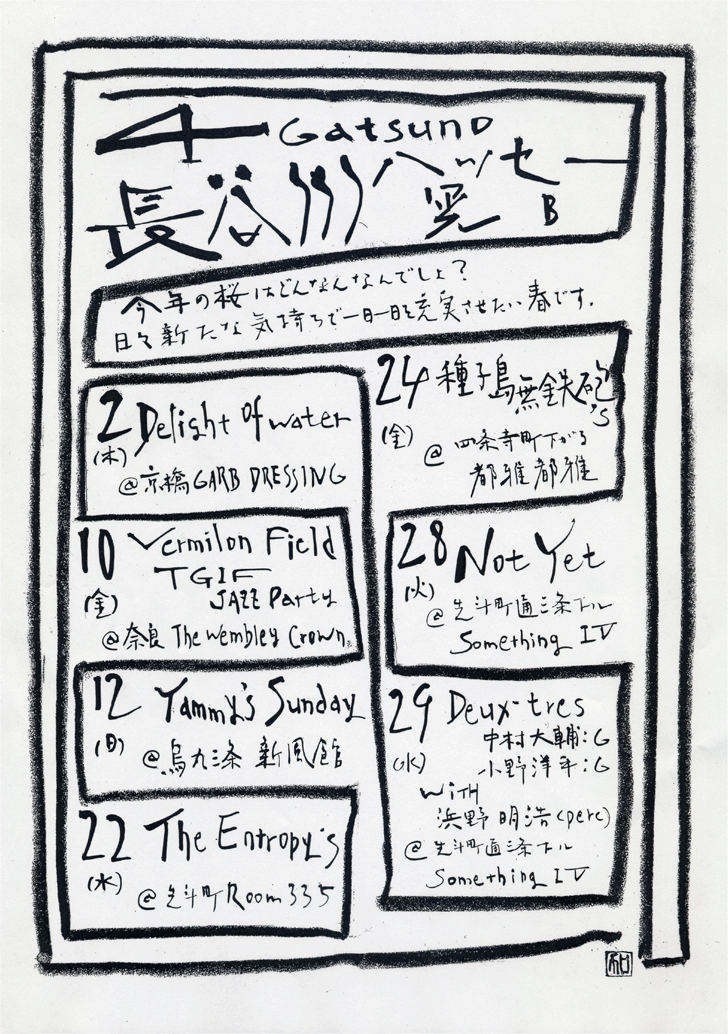 4 Gatsuno
長谷川ハッセー晃 B
今年の桜はどんなんなんでしょ？
日々新たな気持ちで一日一日を充実させたい春です.
2 Delight Of water
(木)
@京橋GARB DRESSING
10 Vermilon Field
TGIF
JAZZ Party
(金)
@奈良 The Wembley Crown.
12 Yammy's Sunday
(日)
@烏丸三条 新風館
22 The Entropy's
(水)
@先斗町Room335
24 種子島無鉄砲's
(金)
@ 四条寺町下がる
都雅都雅
28 Not Yet
(火)
@先斗町通三条下ル
Something IV
29 Deux-tres
(水)
中村大輔:G
小野洋平:G
WiTH
浜野明浩(perc)
@先斗町通三条下ル
Something IV